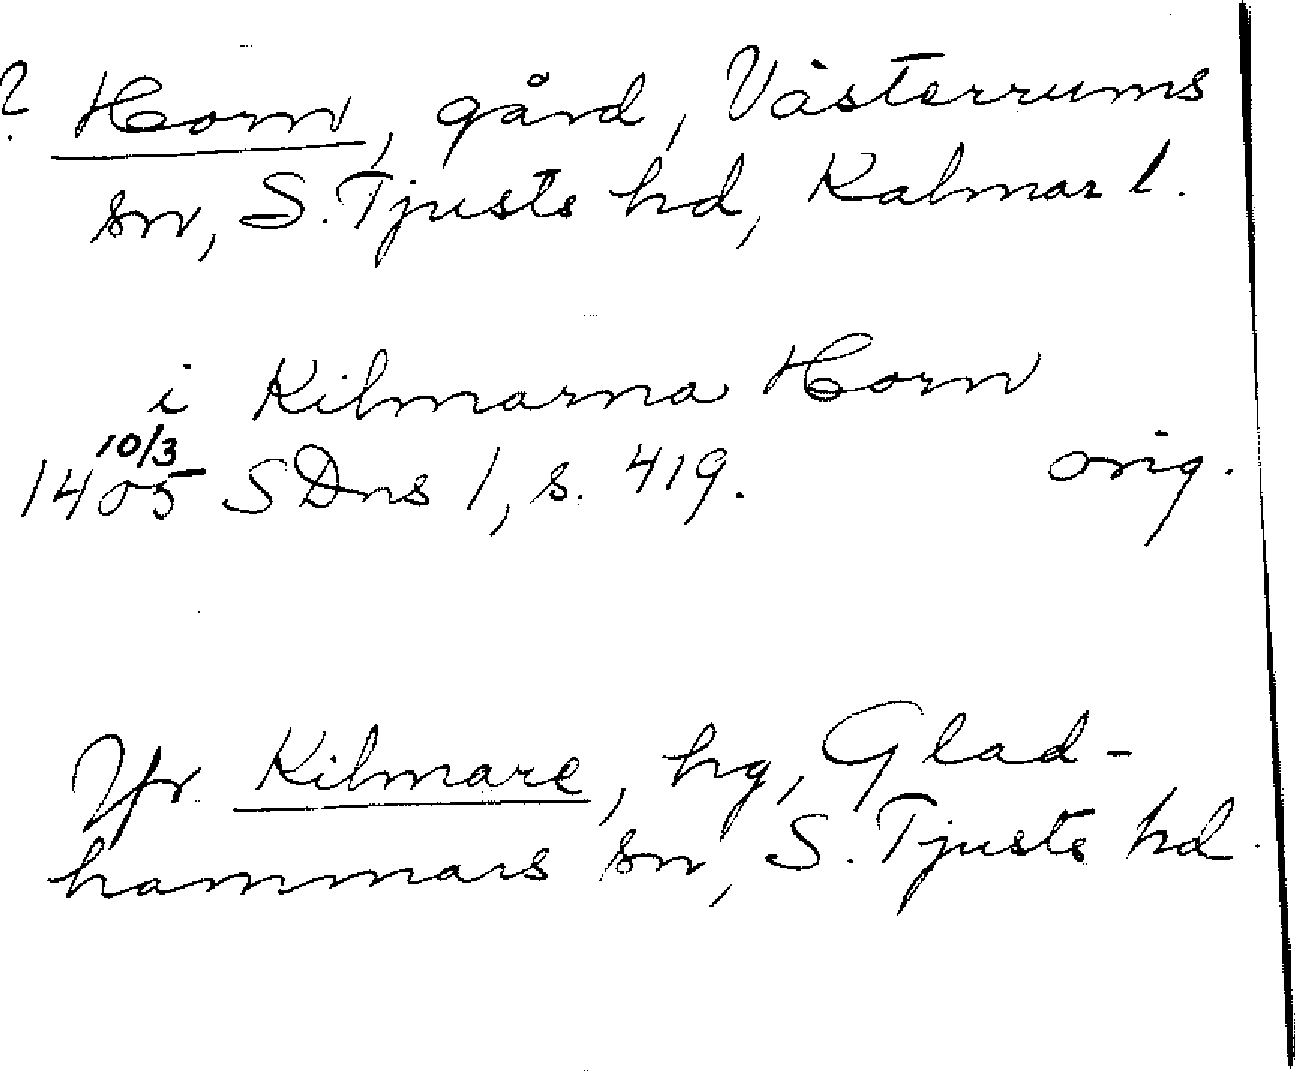 ? Horn, gård, Västerrums
sn, S. Tjusts hd, Kalmar l.
i Kilmarna Horn
10/3
1405 SDns 1, s. 419. orig.
Jfr Kilmare, hg, Glad-
hammars sn, S. Tjusts hd.